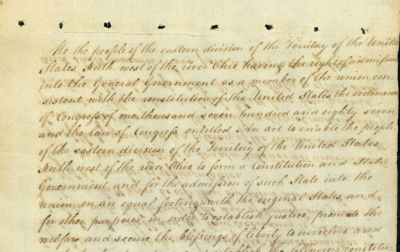 We the people of the eastern division of the Territory of the United
States North west of the river Ohio having the right of admission
into the General Government as a member of the union, con
sistent with the constitution of the United States, the ordinance
of Congress of one thousand seven hundred and eighty seven
and the law of Congress entitled "An act to enable the people
of the eastern division of the Territory of the United States
North west of the river Ohio to form a Constitution and State
Government and for the admission of such State into the
union, on an equal footing with the original States and
for other purposes in order to establish justice, promote the
welfare and secure the blessings of liberty to ourselves and